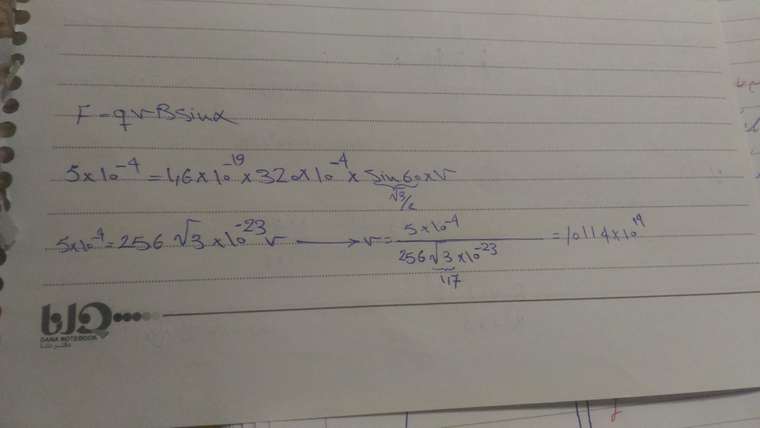 F = qvB sinα
5×10⁻⁴ = 1,6×10⁻¹⁹×320×10⁻⁴×sin60×v
√3/2
5×10⁻⁴ = 256√3×10⁻²³ v → v = 5×10⁻⁴ / 256√3×10⁻²³ = 1,0114×10¹⁹
1,7
دانا
DANA NOTEBOOK
دفتر دانا